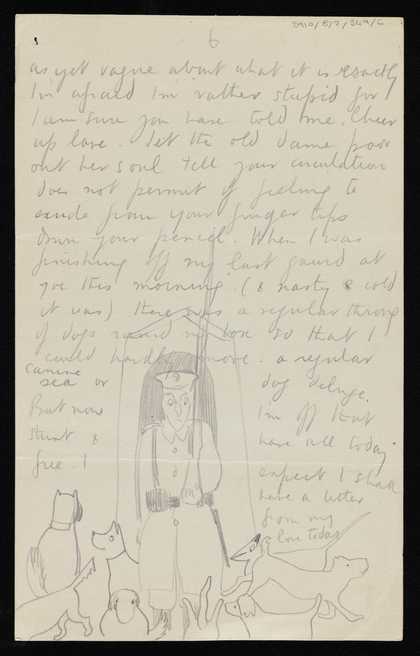 6
as yet vague about what it is exactly
I'm afraid I'm rather stupid for
I am sure you have told me. Cheer
up love. Let the old dame pour
out her soul till your circulation
does not permit of feeling to
exude from your finger tips
down your pencil. When I was
finishing off my last guard at
this morning. (& nasty & cold
it was) there was a regular throng
of dogs round my box so that I
could hardly move. a regular
canine
sea or dog deluge.
But now I'm off that
stunt & have all today
free. I expect I shall
have a letter
from my
love today